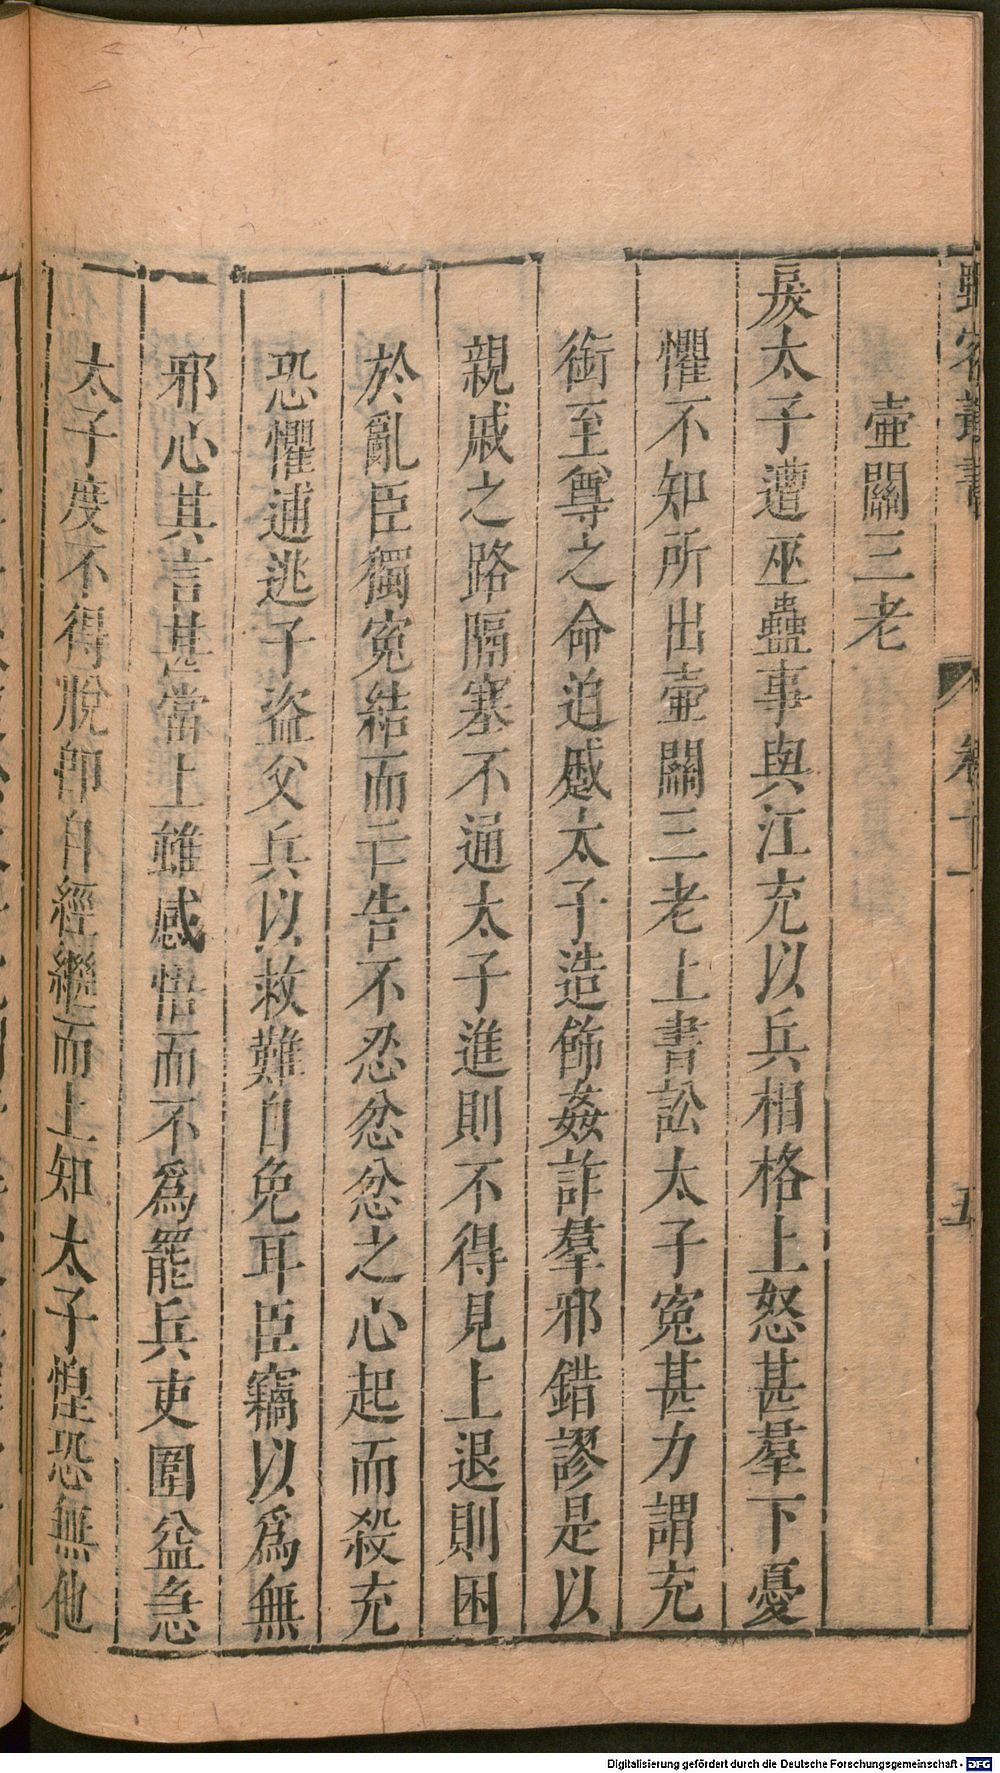 壺關三老
戾太子遭巫蠱事與江充以兵相格上怒甚羣下憂
懼不知所出壺關三老上書訟太子寃甚力謂充
銜至尊之命迫蹙太子造飾姦詐羣邪錯謬是以
親戚之路隔塞不通太子進則不得見上退則困
於亂臣獨寃結而亡告不忍忿忿之心起而殺充
恐懼逋逃子盜父兵以救難自免耳臣竊以爲無
邪心其言甚當上雖感悟而不爲罷兵吏圍益急
太子度不得脫即自經繼而上知太子惶恐無他
卷十一
五
Digitalisierung gefördert durch die Deutsche Forschungsgemeinschaft - DFG